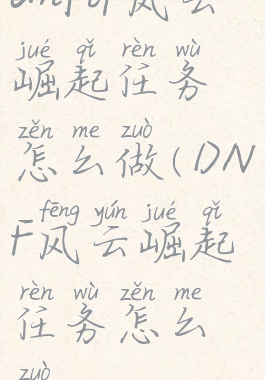 风云
jué qǐ rèn wù
崛起任务
zěn me zuò
怎么做(DN
fēng yún jué qǐ
F风云崛起
rèn wù zěn me
任务怎么
zuò